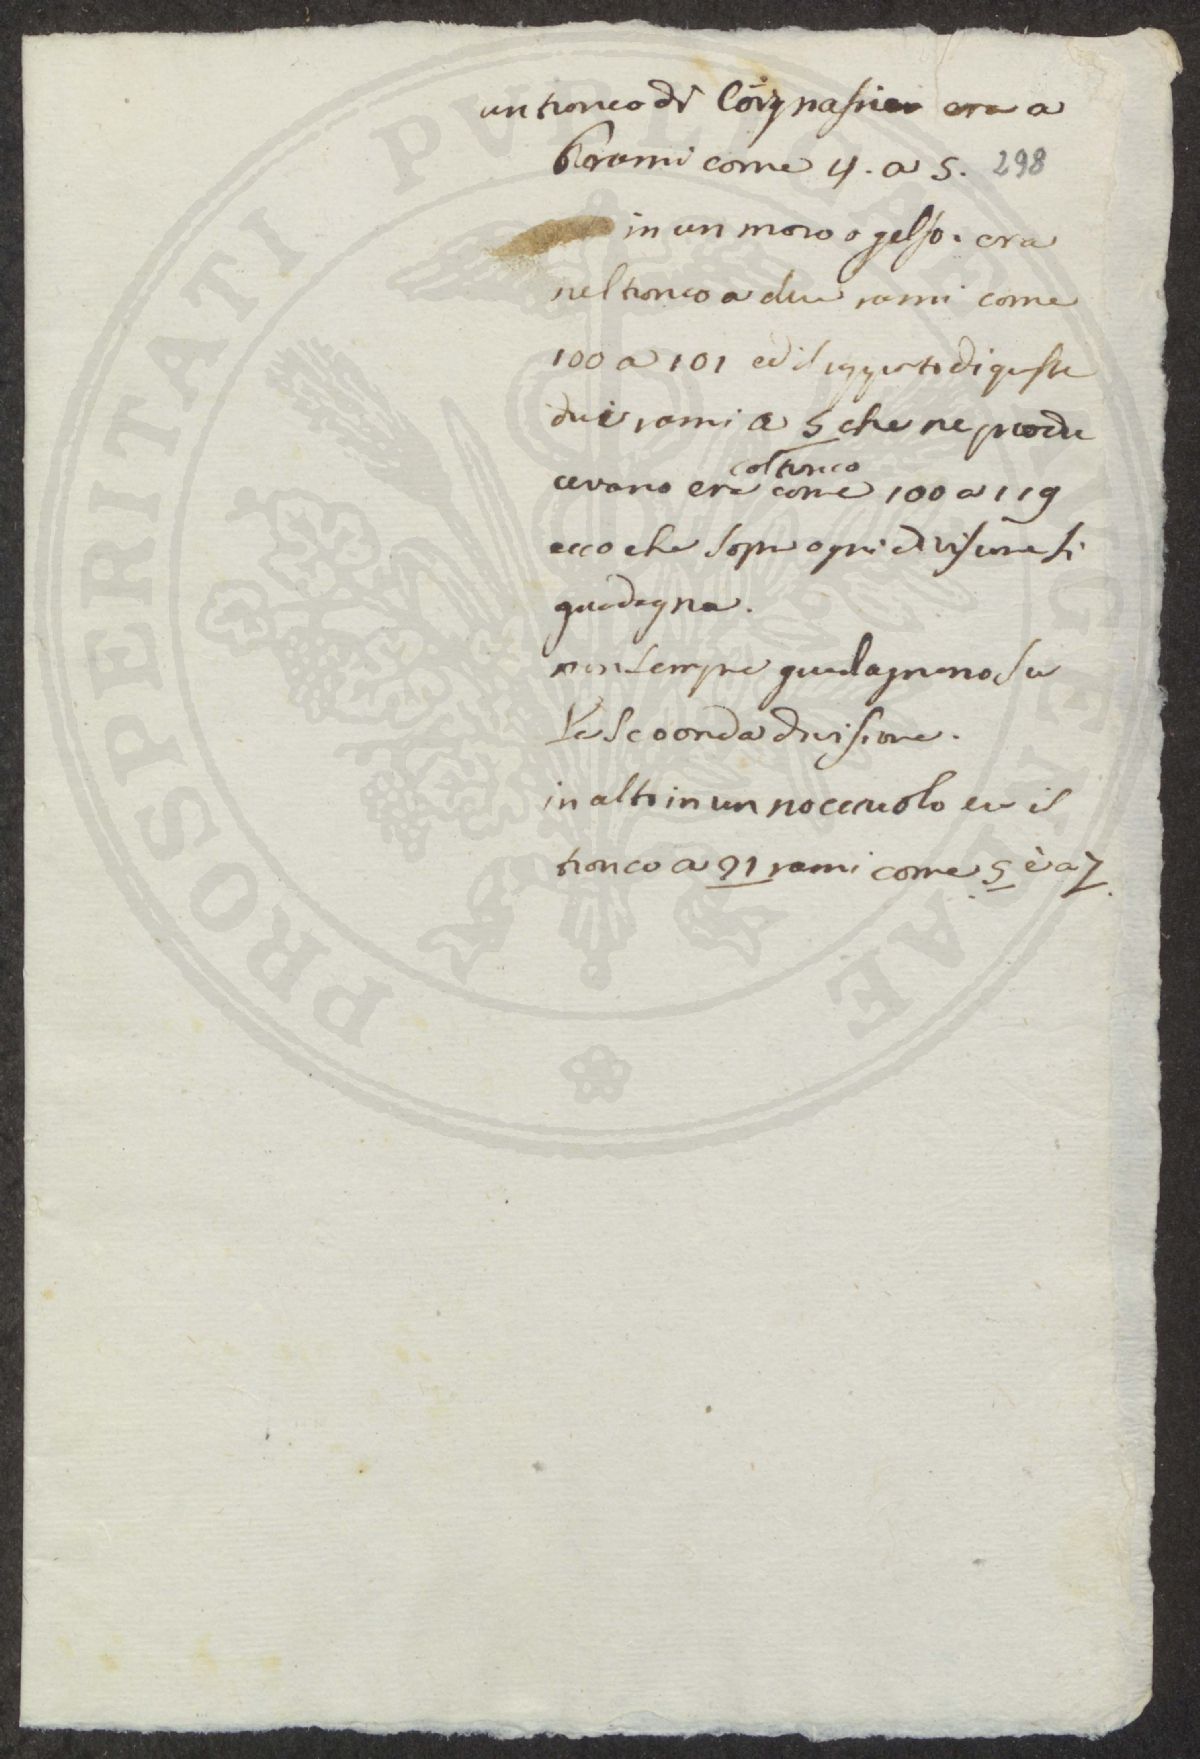 un tronco di era a
6 rami come 4. a 5. 298
in un moro o gelso. era
nel tronco a due rami come
100 a 101 ed il di queste
due rami a 5 che ne produ
cevano era come 100 a 119
col tronco
ecco che sopra ogni divisione si
guadagna.
non sempre guadagnano su
la seconda divisione.
in alto in un nocciuolo era il
tronco a 21 rami come 5 è a 7.
PROSPERITATI PUBLICAE AUGENDAE